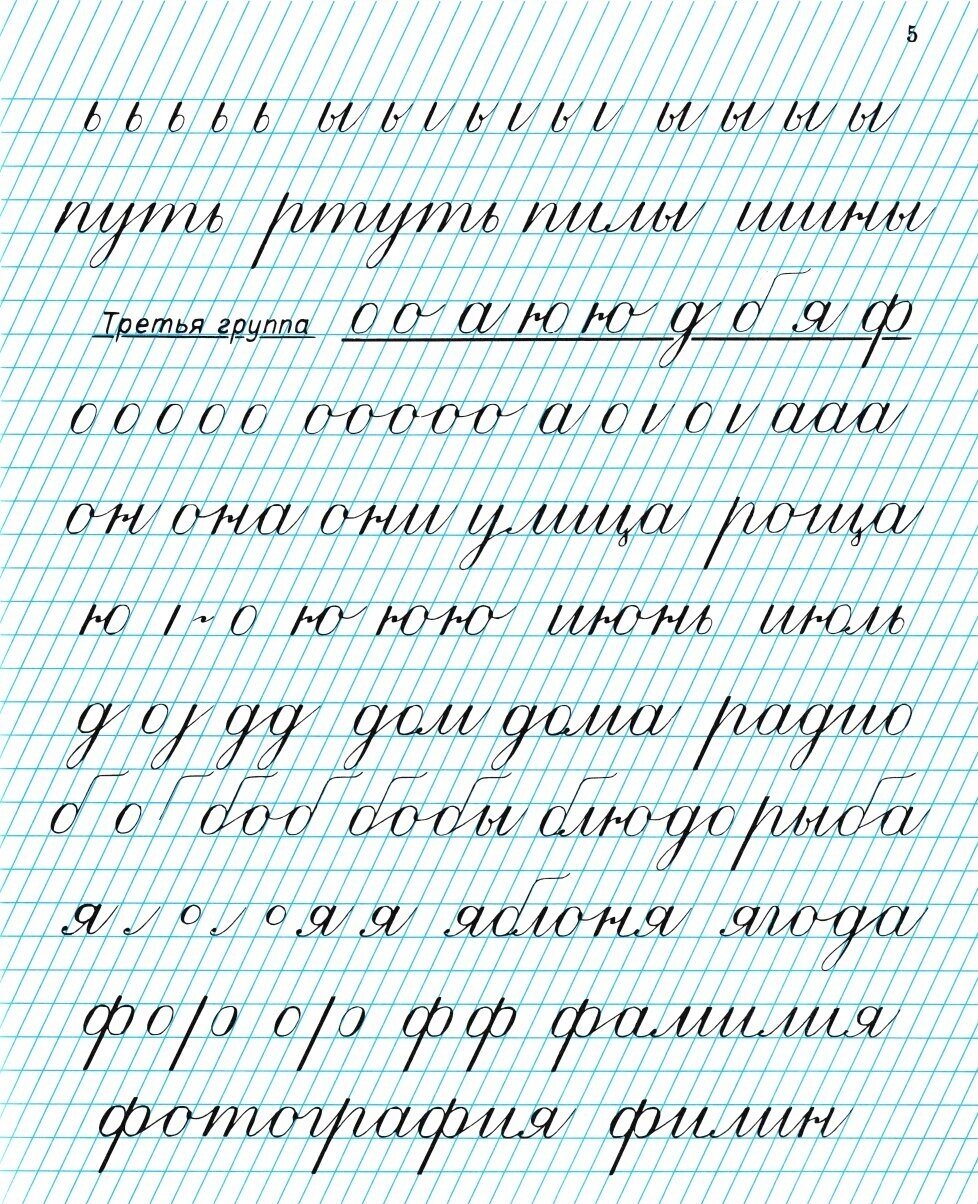 5
ь ь ь ь ь ы ь ı ь ı ь ı ы ы ы ы
путь ртуть пилы шины
Третья группа о о а ю ю д б я ф
о о о о о ооооо а о ı о ı ааа
он она они улица роща
ю ı ~ о ю юю июнь июль
д о ȷ дд дом дома радио
б о боб бобы блюдо рыба
я о о я я яблоня ягода
ф о р о р ф ф фамилия
фотография филин